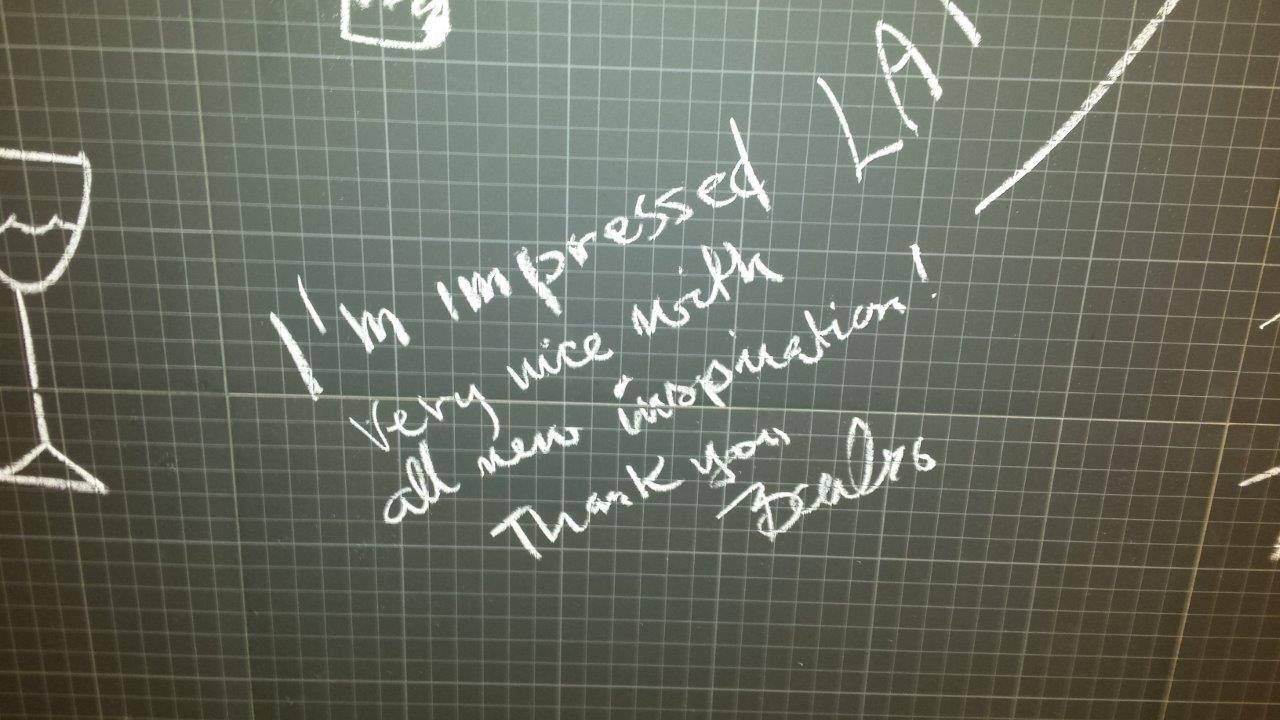 LA
I'm impressed
very nice with
all new inspiration!
Thank you